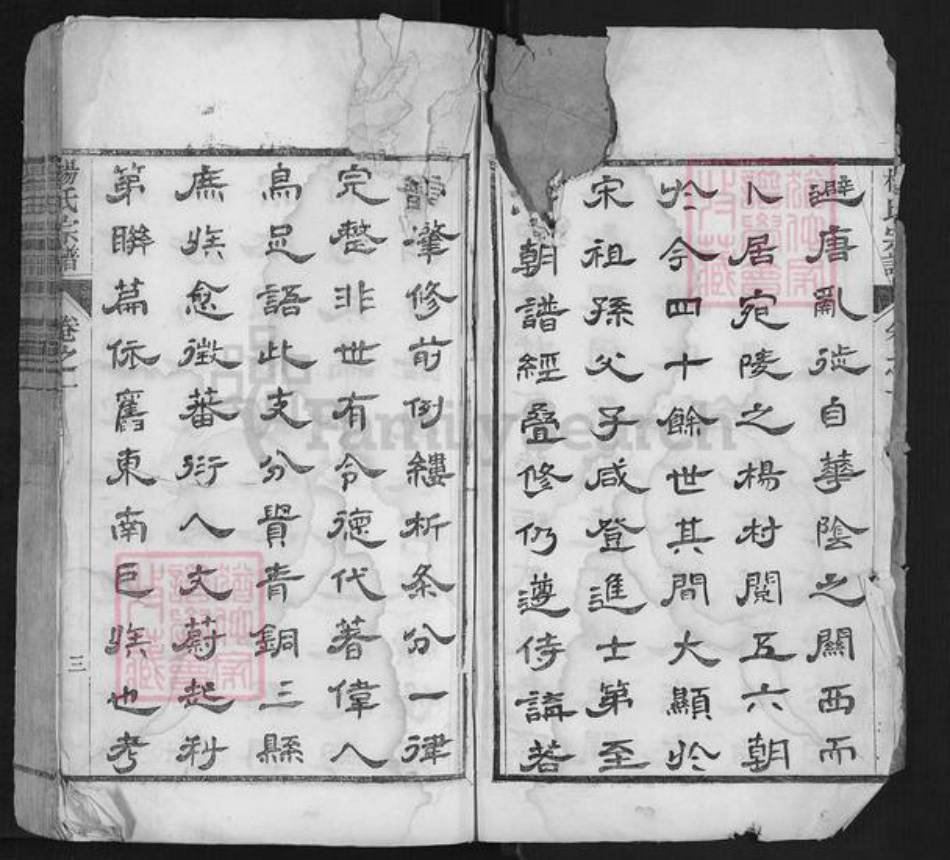 避唐亂徙自華陰之關西而
卜居宛陵之楊村閱五六朝
於今四十餘世其間大顯於
宋祖孫父子咸登進士第至
朝譜經疊修仍遵侍講若
肇修前例縷析条分一律
完整非世有令德代著偉人
烏足語此支分貴青銅三縣
庶族愈徵蕃衍人文蔚起科
第聯篇依舊東南巨族也考
楊氏宗譜
卷之一
三
FamilySearch